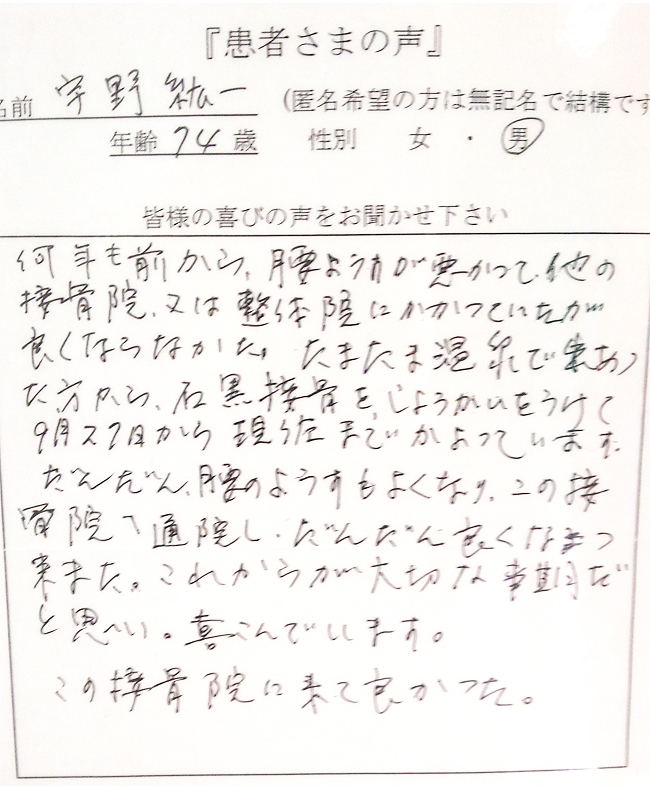 『患者さまの声』
名前 宇野紘一 (匿名希望の方は無記名で結構です
年齢 74 歳 性別 女 ・ 男
皆様の喜びの声をお聞かせ下さい
何年も前から、腰ようすが悪かつて、他の
接骨院、又は整体院にかかつていたが
良くならなかた。たまたま温泉で出あっ
た方から、石黒接骨を、しようかいをうけて
9月27日から現在までかよっています。
だんだん、腰のようすもよくなり、この接
骨院へ通院し、だんだん良くなつ
来また。これからが大切な時期だ
と思い。喜こんでいます。
この接骨院に来て良かつた。